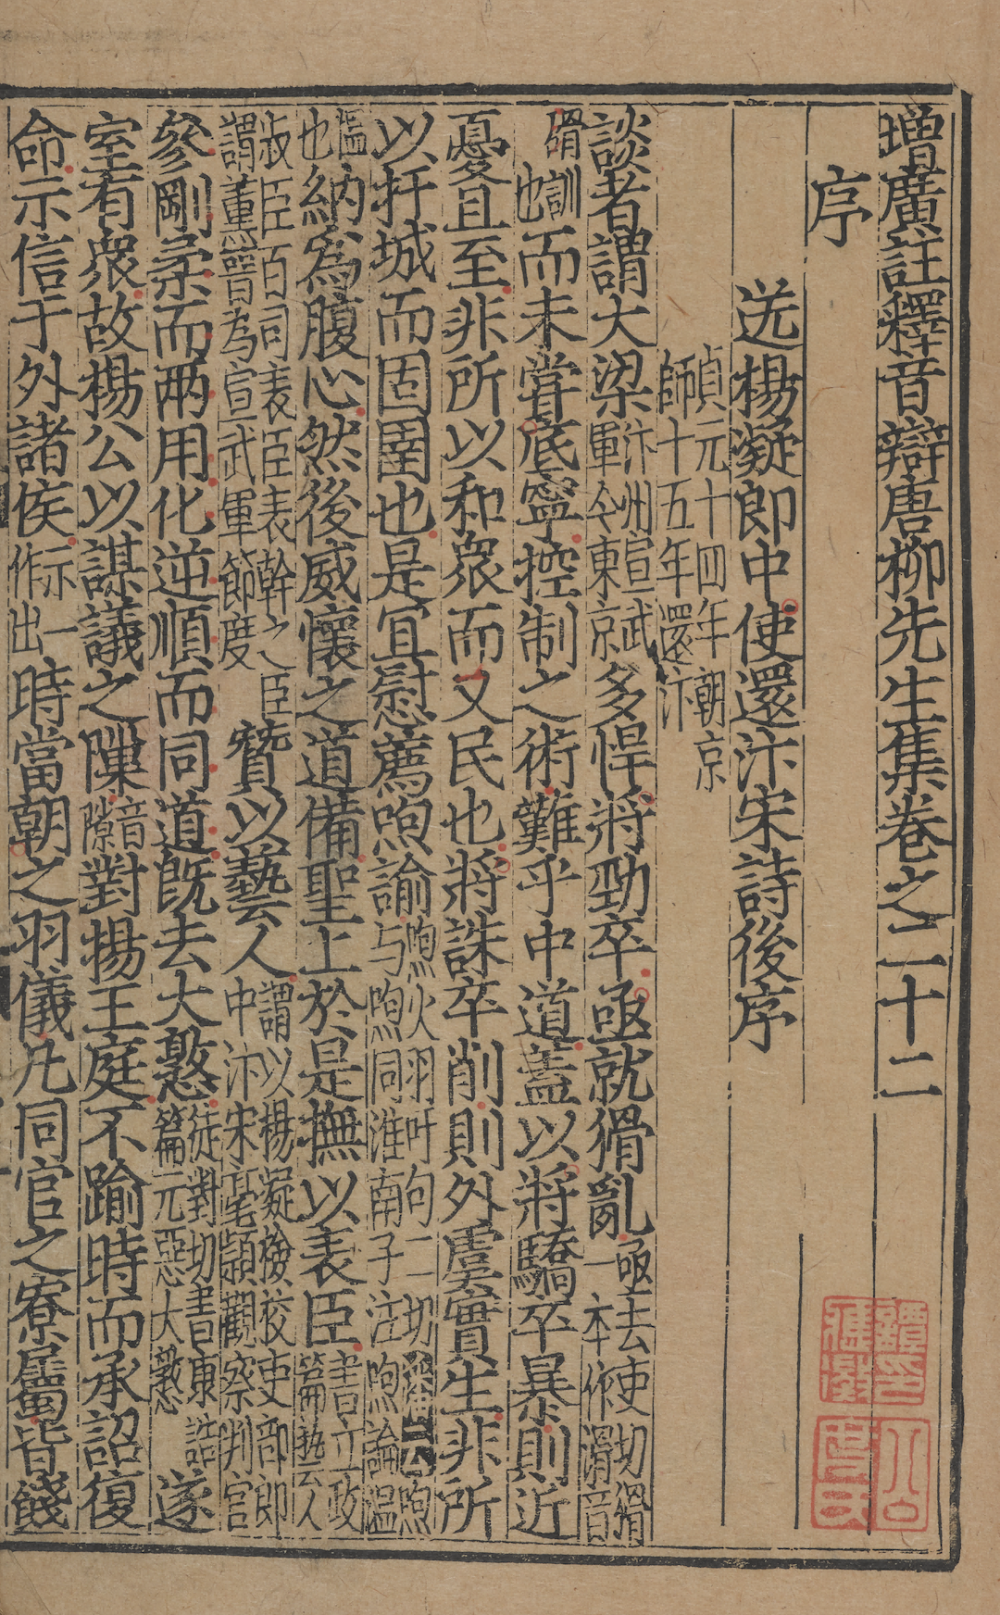 增廣註釋音辯唐柳先生集卷之二十二
序
送楊凝郎中使還汴宋詩後序
貞元十四年朝京
師十五年還汴
談者謂大梁汴州宣武軍今東京多悍將勁卒亟就猾亂亟去吏切猾一本作滑音
猾訓也而未嘗底寧控制之術難乎中道蓋以將驕卒暴則近
憂且至非所以和衆而乂民也將誅卒削則外虞實生非所
以扞城而固圉也是宜慰薦呴諭呴火羽吁句二切漢書云呴与煦同淮南子注呴論温
嫗也納爲腹心然後威懷之道備聖上於是撫以表臣書立政篇藝人
表臣百司表臣表幹之臣謂董晋为宣武軍節度贊以藝人謂以楊凝檢校吏部郎中汴宋亳潁觀察判官
參剛柔而兩用化逆順而同道旣去大憝徒對切書康誥篇元惡大憝遂
室有衆故楊公以謀議之隟音隙對揚王庭不踰時而承詔復
命示信于外諸侯示一作出時當朝之羽儀凡同官之寮屬皆餞